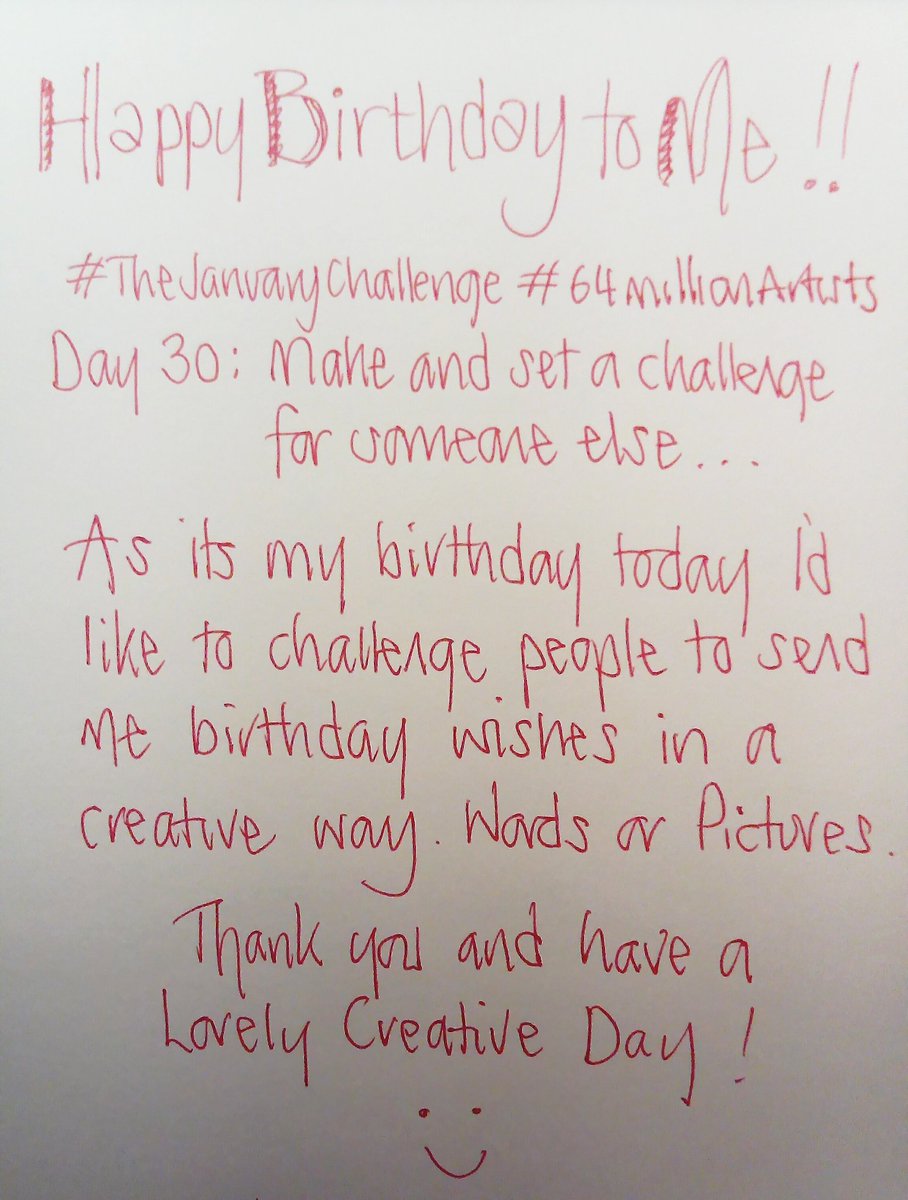 Happy Birthday to Me!!
#TheJanuaryChallenge #64millionArtists
Day 30: Make and set a challenge
for someone else...
As its my birthday today I'd
like to challenge people to send
me birthday wishes in a
creative way. Words or Pictures.
Thank you and have a
Lovely Creative Day!